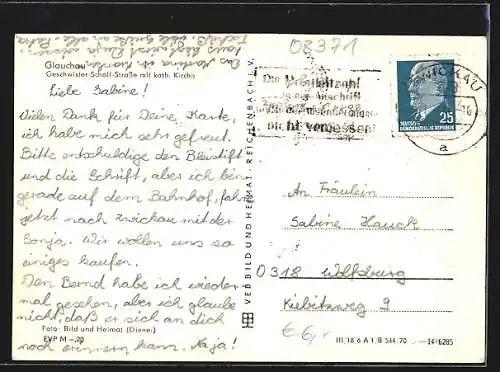 08371
Glauchau
Geschwister-Scholl-Straße mit kath. Kirche
Liebe Sabine!
Vielen Dank für Deine Karte,
ich habe mich sehr gefreut.
Bitte entschuldige den Bleistift
und die Schrift, aber ich bin
gerade auf dem Bahnhof, fahr
jetzt nach Zwickau mit der
Sonja. Wir wollen uns so
einiges kaufen.
Den Bernd habe ich wieder
mal gesehen, aber ich glaube
nicht, daß er sich an dich
noch erinnern kann. Naja!
Foto: Bild und Heimat (Diener)
EVP M -,20
VEB BILD UND HEIMAT REICHENBACH I. V.
Die Postleitzahl
nicht vergessen!
ZWICKAU
a
25
DEUTSCHE
DEMOKRATISCHE REPUBLIK
An Fräulein
Sabine Hauck
0318 Wolfsburg
Kiebitzweg 9
€ 6,-
III/18/6 A 1/B 544/70 14/6285